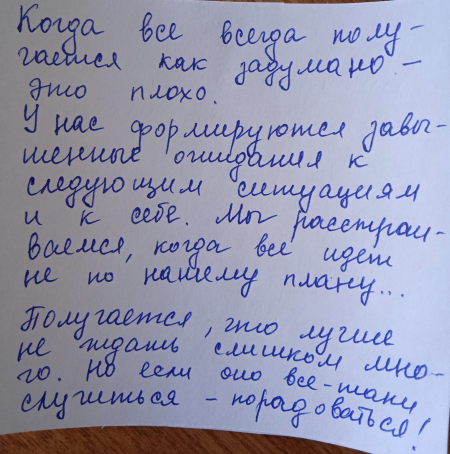 Когда все всегда полу-
чается как задумано -
это плохо.
У нас формируются завы-
шенные ожидания к
следующим ситуациям
и к себе. Мы расстраи-
ваемся, когда все идет
не по нашему плану...
Получается, что лучше
не ждать слишком мно-
го. Но если оно все-таки
случиться - порадоваться!